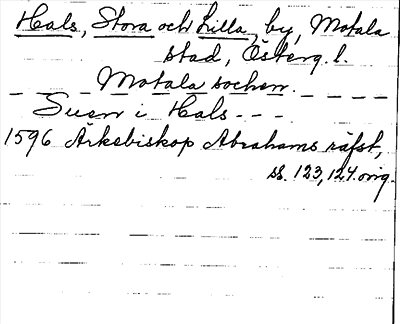 Hals, Stora och Lilla, by, Motala
stad, Österg. l.
Motala socken.
Suen i Hals - - -
1596 Ärkebiskop Abrahams räfst,
ss. 123, 124. orig.